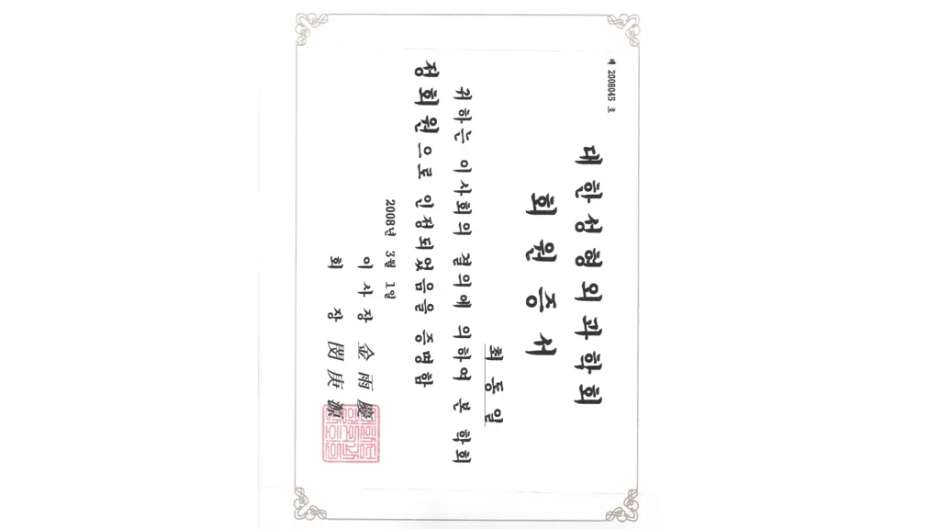 제 2008045 호
대한성형외과학회
회원증서
최동일
귀하는 이사회의 결의에 의하여 본 학회
정회원으로 인정되었음을 증명함
2008년 3월 1일
이사장 金雨慶
회 장 閔庚